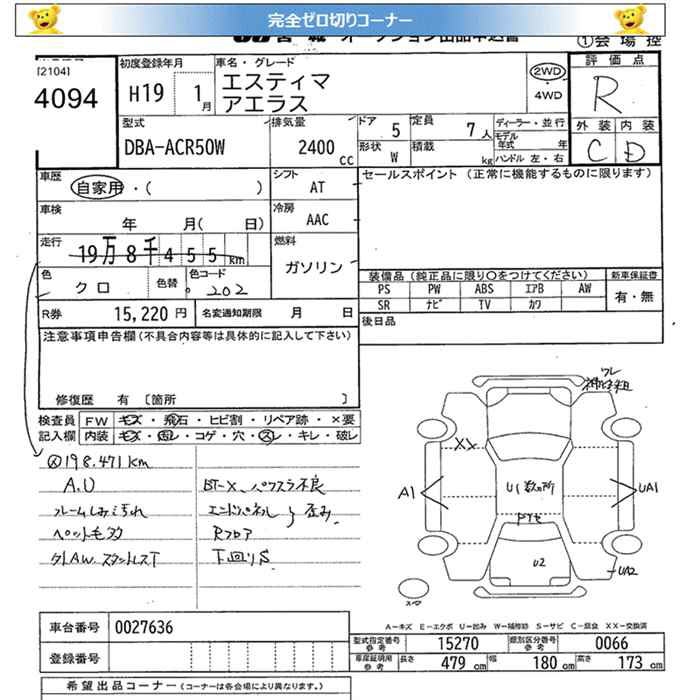 完全ゼロ切りコーナー
①会場控
[2104]
4094
初度登録年月
H19 1月
車名・グレード
エスティマ
アエラス
2WD
4WD
評価点
R
外装 内装
C D
型式
DBA-ACR50W
排気量
2400 CC
ドア 5
定員 7人
形状 W
積載 kg
ディーラー・並行
モデル年式 年
ハンドル 左・右
車歴
自家用・( )
シフト
AT
セールスポイント (正常に機能するものに限ります)
車検 年 月( 日)
冷房
AAC
走行
19万8千455km
燃料
ガソリン
色
クロ
色替
色コード
202
装備品(純正品に限り〇をつけてください)
新車保証書
PS PW ABS エアB AW
有・無
SR ナビ TV カワ
R券 15,220円
名変通知期限 月 日
後日品
注意事項申告欄(不具合内容等は具体的に記入して下さい)
修復歴 有 〔箇所 〕
検査員
記入欄
FW キズ・飛石・ヒビ割・リペア跡・×要
内装 キズ・凹レ・コゲ・穴・スレ・キレ・破レ
198.471km
A.U
フレームしみ汚れ
ペット毛多
BT-X、パワスラ不良
エンドパネル 歪み
Rフロア
下回りS
XX
A1
U1数ヶ所
UA1
U2
UA2
A-キズ E-エクボ U-凹み W-補修跡 S-サビ C-腐食 XX-交換済
車台番号 0027636
登録番号
型式指定番号参考 15270
類別区分番号参考 0066
車庫証明用参考 長さ 479cm 幅 180cm 高さ 173cm
希望出品コーナー(コーナーは各会場により異なります。)